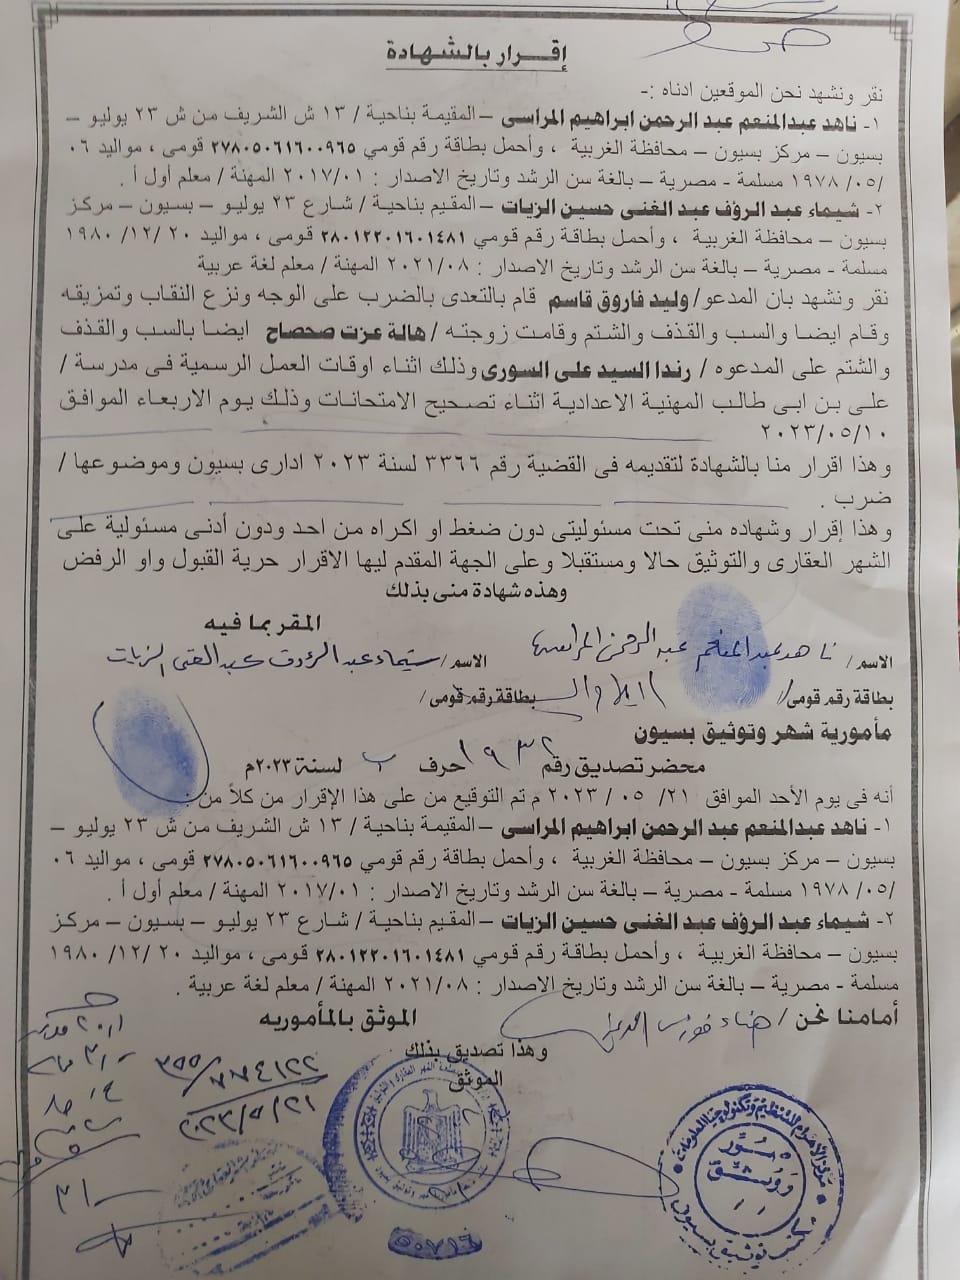 إقــرار بالشهادة
نقر ونشهد نحن الموقعين ادناه :-
١- ناهد عبدالمنعم عبد الرحمن ابراهيم المراسى – المقيمة بناحية / ١٣ ش الشريف من ش ٢٣ يوليو –
بسيون – مركز بسيون – محافظة الغربية ، وأحمل بطاقة رقم قومي ٢٧٨٠٥٠٦١٦٠٠٩٦٥ قومى ، مواليد ٠٦
/٠٥/ ١٩٧٨ مسلمة - مصرية – بالغة سن الرشد وتاريخ الاصدار : ٢٠١٧/٠١ المهنة / معلم أول أ .
٢- شيماء عبد الرؤف عبد الغنى حسين الزيات – المقيم بناحية / شارع ٢٣ يوليو – بسيون – مركز
بسيون – محافظة الغربية ، وأحمل بطاقة رقم قومي ٢٨٠١٢٢٠١٦٠١٤٨١ قومى ، مواليد ٢٠ /١٢/ ١٩٨٠
مسلمة - مصرية – بالغة سن الرشد وتاريخ الاصدار : ٢٠٢١/٠٨ المهنة / معلم لغة عربية
نقر ونشهد بان المدعو/ وليد فاروق قاسم قام بالتعدى بالضرب على الوجه ونزع النقاب وتمزيقه
وقام ايضا والسب والقذف والشتم وقامت زوجته / هالة عزت صحصاح ايضا بالسب والقذف
والشتم على المدعوه / رندا السيد على السورى وذلك اثناء اوقات العمل الرسمية فى مدرسة /
على بن ابى طالب المهنية الاعدادية اثناء تصحيح الامتحانات وذلك يوم الاربعاء الموافق
٢٠٢٣/٠٥/١٠
وهذا اقرار منا بالشهادة لتقديمه فى القضية رقم ٣٣٦٦ لسنة ٢٠٢٣ ادارى بسيون وموضوعها /
ضرب .
وهذا إقرار وشهاده منى تحت مسئوليتى دون ضغط او اكراه من احد ودون أدنى مسئولية على
الشهر العقارى والتوثيق حالا ومستقبلا وعلى الجهة المقدم ليها الاقرار حرية القبول واو الرفض
وهذه شهادة منى بذلك
المقر بما فيه
الاسم / ناهد عبد المنعم عبد الرحمن المراسى الاسم / شيماء عبد الرؤوف عبد الغنى الزيات
بطاقة رقم قومى/ بطاقة رقم قومى/
مأمورية شهر وتوثيق بسيون
محضر تصديق رقم ١٩٣٢ حرف ب لسنة ٢٠٢٣م
أنه فى يوم الأحد الموافق ٢١/ ٠٥ / ٢٠٢٣ م تم التوقيع من على هذا الإقرار من كلاً من :
١- ناهد عبدالمنعم عبد الرحمن ابراهيم المراسى – المقيمة بناحية / ١٣ ش الشريف من ش ٢٣ يوليو –
بسيون – مركز بسيون – محافظة الغربية ، وأحمل بطاقة رقم قومي ٢٧٨٠٥٠٦١٦٠٠٩٦٥ قومى ، مواليد ٠٦
/٠٥/ ١٩٧٨ مسلمة - مصرية – بالغة سن الرشد وتاريخ الاصدار : ٢٠١٧/٠١ المهنة / معلم أول أ .
٢- شيماء عبد الرؤف عبد الغنى حسين الزيات – المقيم بناحية / شارع ٢٣ يوليو – بسيون – مركز
بسيون – محافظة الغربية ، وأحمل بطاقة رقم قومي ٢٨٠١٢٢٠١٦٠١٤٨١ قومى ، مواليد ٢٠ /١٢/ ١٩٨٠
مسلمة - مصرية – بالغة سن الرشد وتاريخ الاصدار : ٢٠٢١/٠٨ المهنة / معلم لغة عربية .
أمامنا نحن / هناء فوزى الموثق بالمأموريه
وهذا تصديق بذلك
الموثق
٢٠٢٣/٥/٢١
مركز الأهرام للتنظيم وتكنولوجيا المعلومات
مكتب توثيق بسيون
٥٠٧١٦